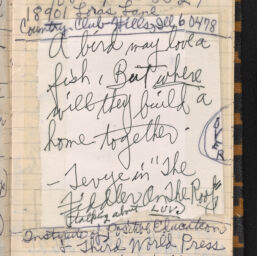 18901 Loras Lane
Country Club Hills, Ill, 60478
A bird may love a
fish, But where
will they build a
home together.
- Tevye in "The
Fiddler On The Roof"
talking about Love
OVER
Institute of Positive Education
& Third World Press